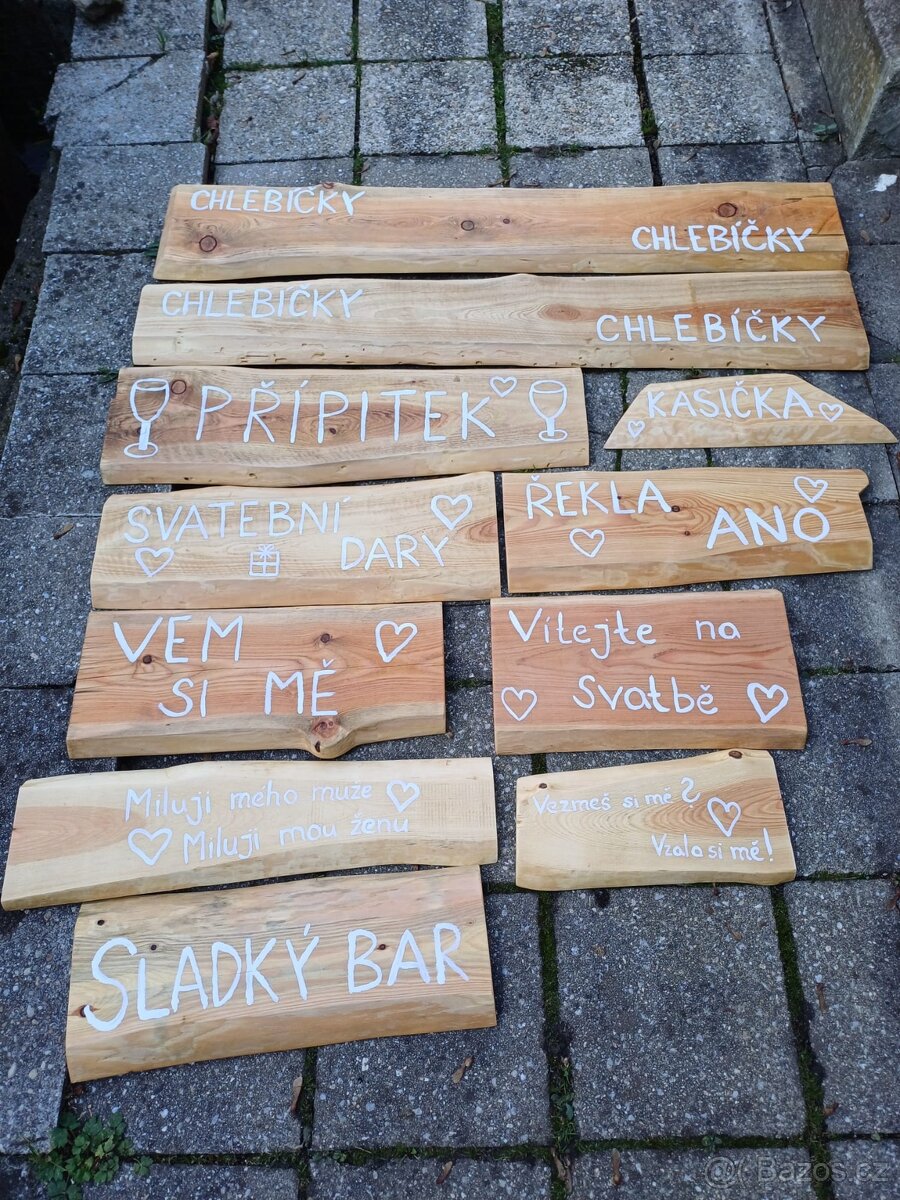 CHLEBÍČKY
CHLEBÍČKY
CHLEBIČKY
CHLEBÍČKY
PŘÍPITEK
KASIČKA
SVATEBNÍ
DARY
ŘEKLA
ANO
VEM
SI MĚ
Vítejte na
Svatbě
Miluji mého muže
Miluji mou ženu
Vezmeš si mě?
Vzala si mě!
SLADKÝ BAR
@ Bazos.cz